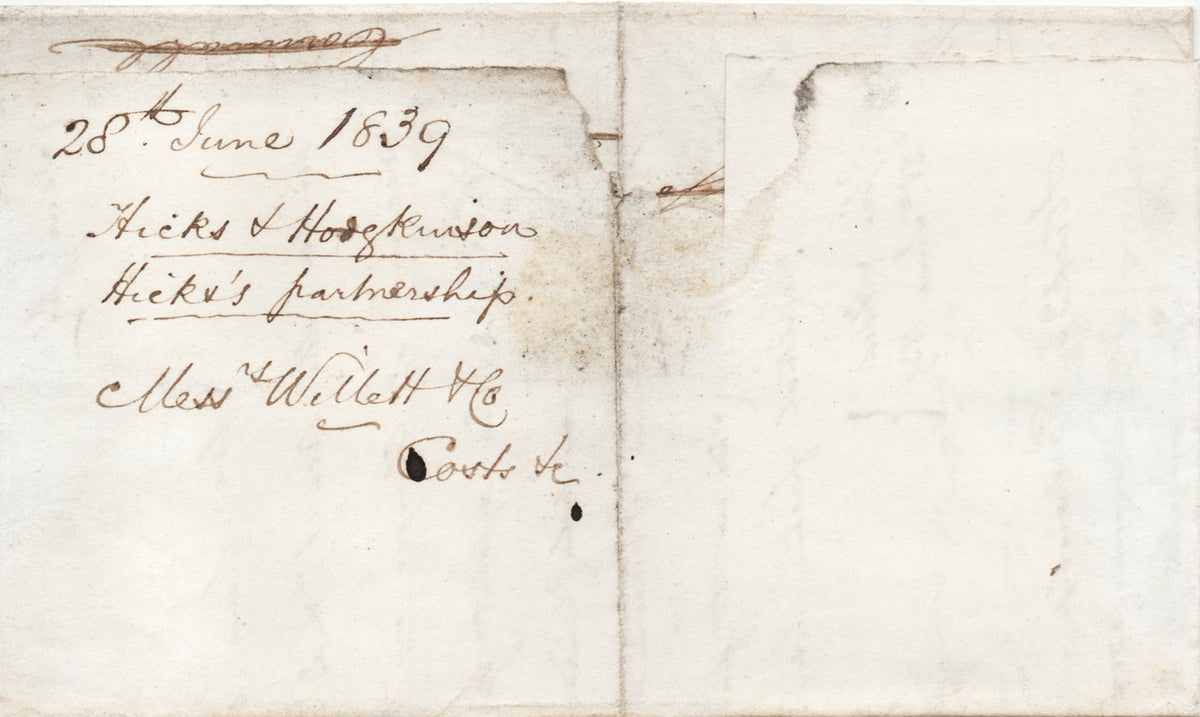 28th June 1839
Hicks & Hodgkinson
Hicks's partnership.
Messrs Willett & Co
Costs &c.